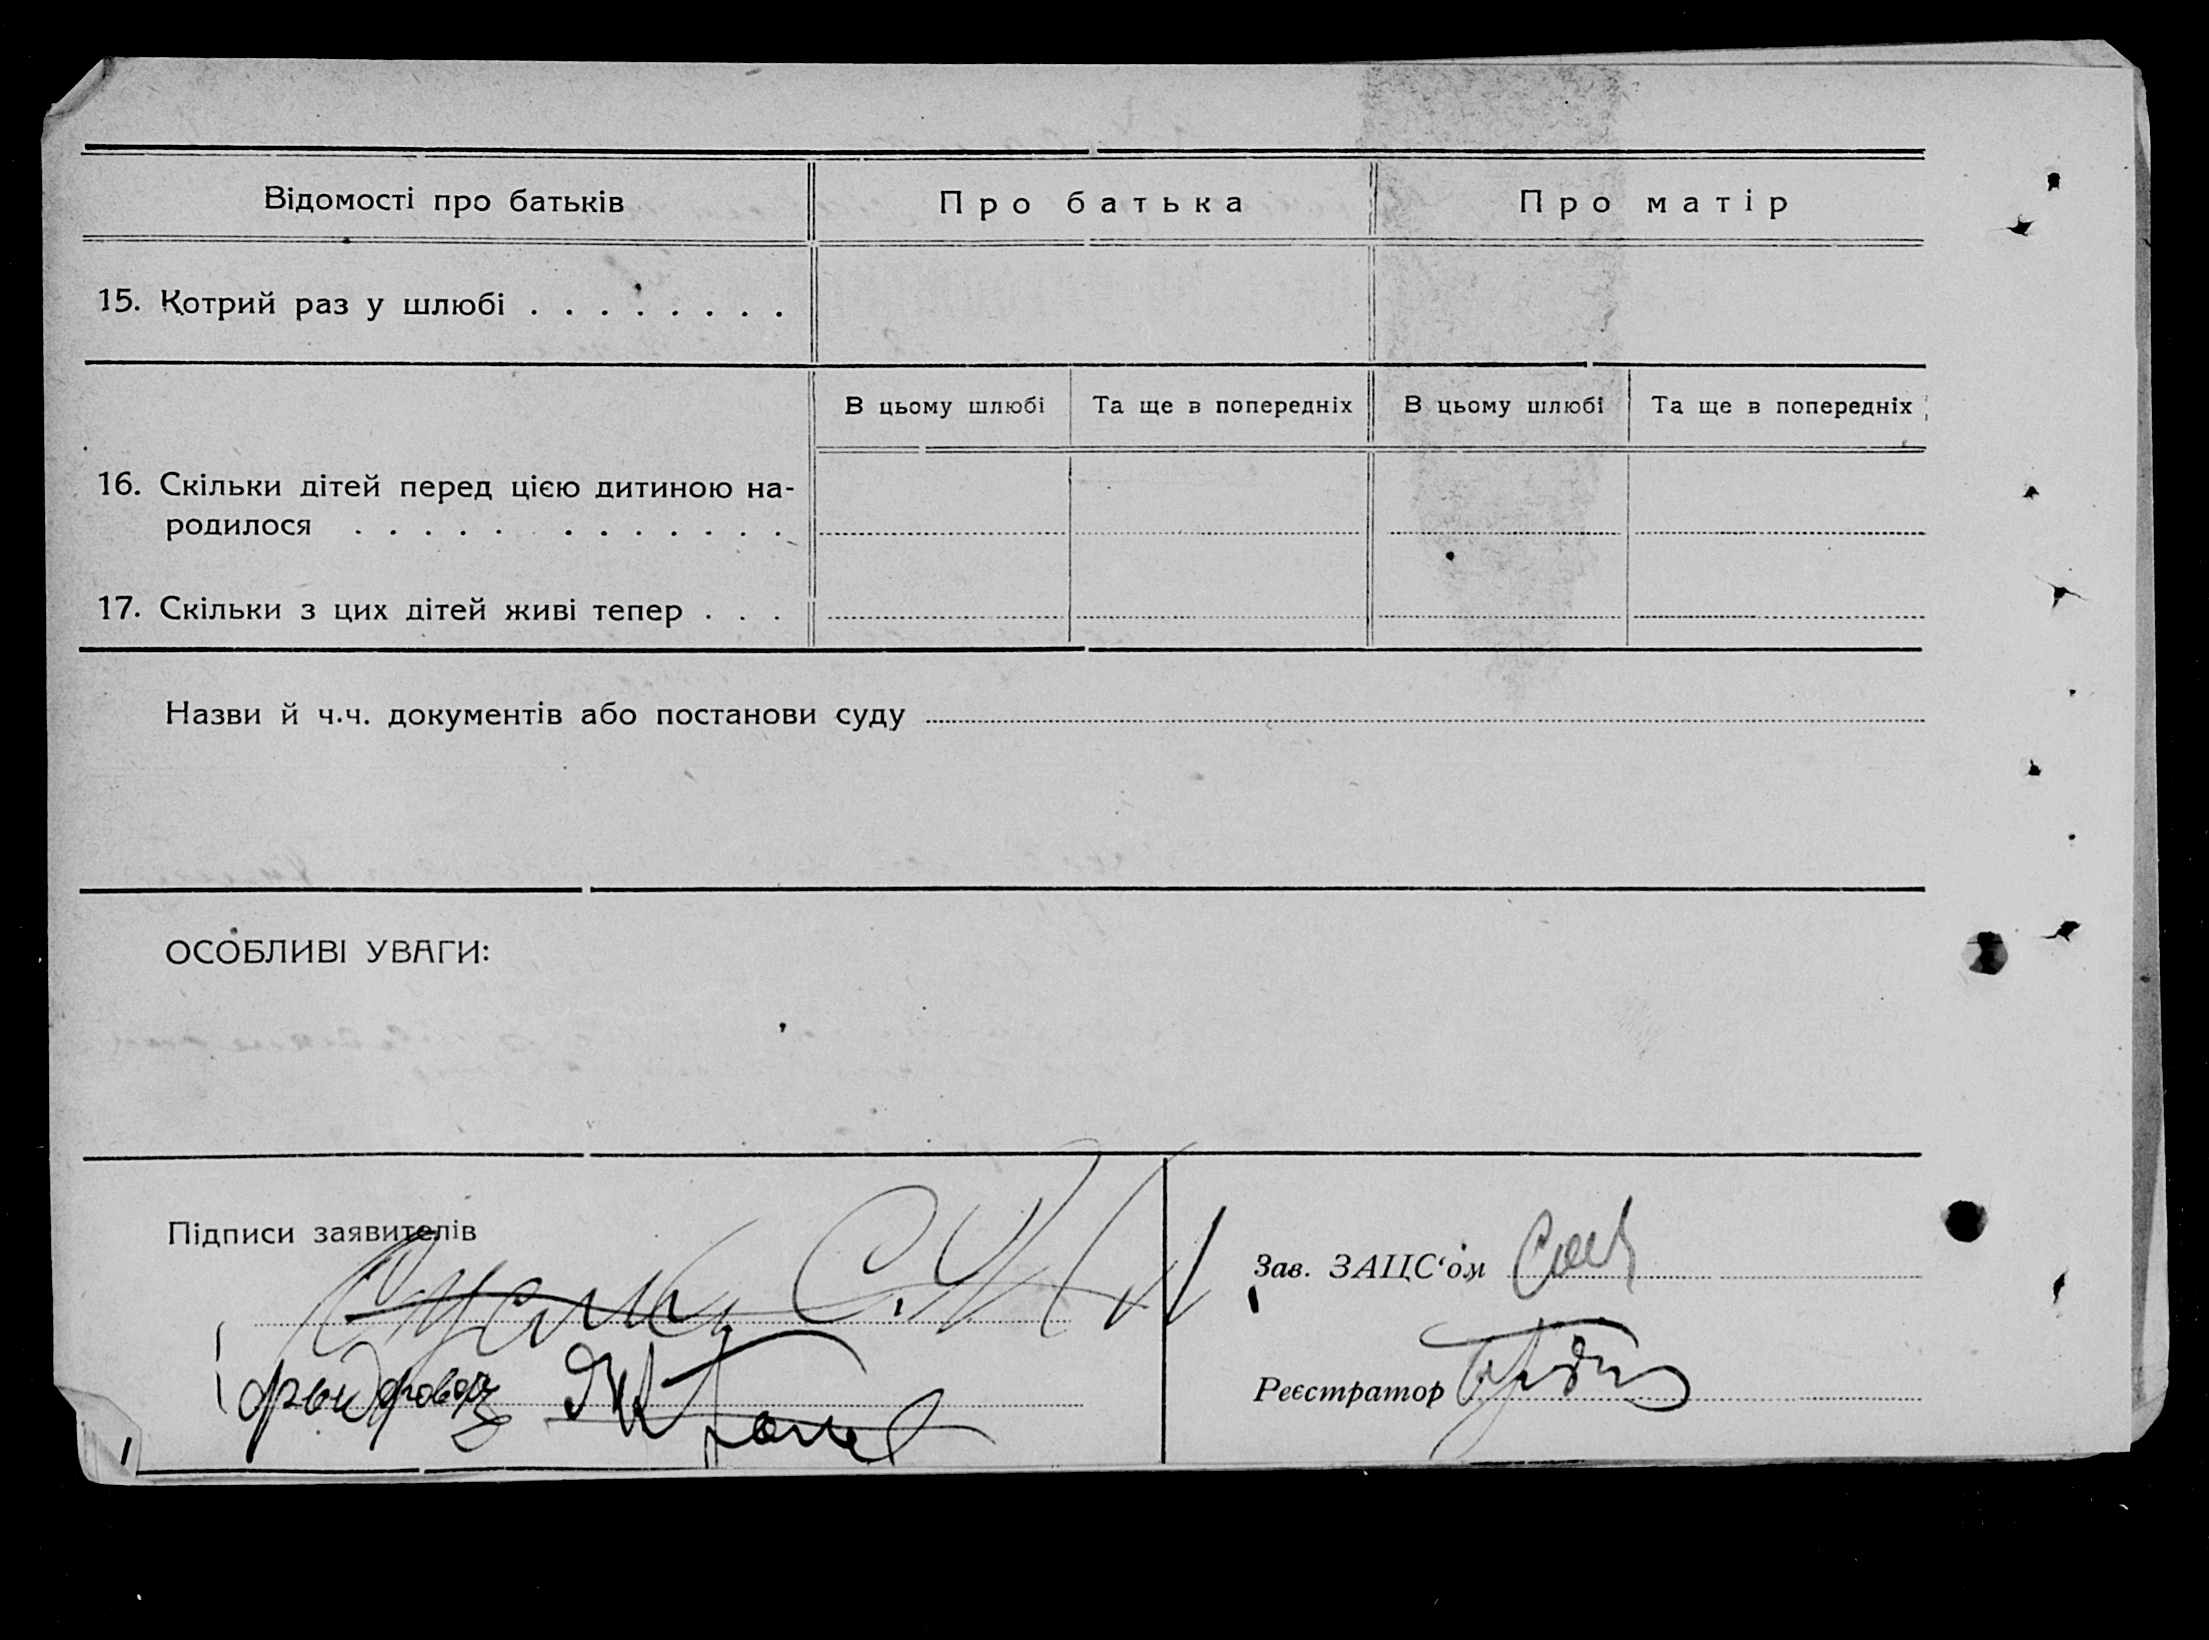 Відомості про батьків Про батька Про матір
15. Котрий раз у шлюбі . . . . . . . .
В цьому шлюбі Та ще в попередніх В цьому шлюбі Та ще в попередніх
16. Скільки дітей перед цією дитиною на-
родилося . . . . . . . . . . . .
17. Скільки з цих дітей живі тепер . . .
Назви й ч.ч. документів або постанови суду
ОСОБЛИВІ УВАГИ:
Підписи заявителів
Зав. ЗАЦС‘ом
Реєстратор